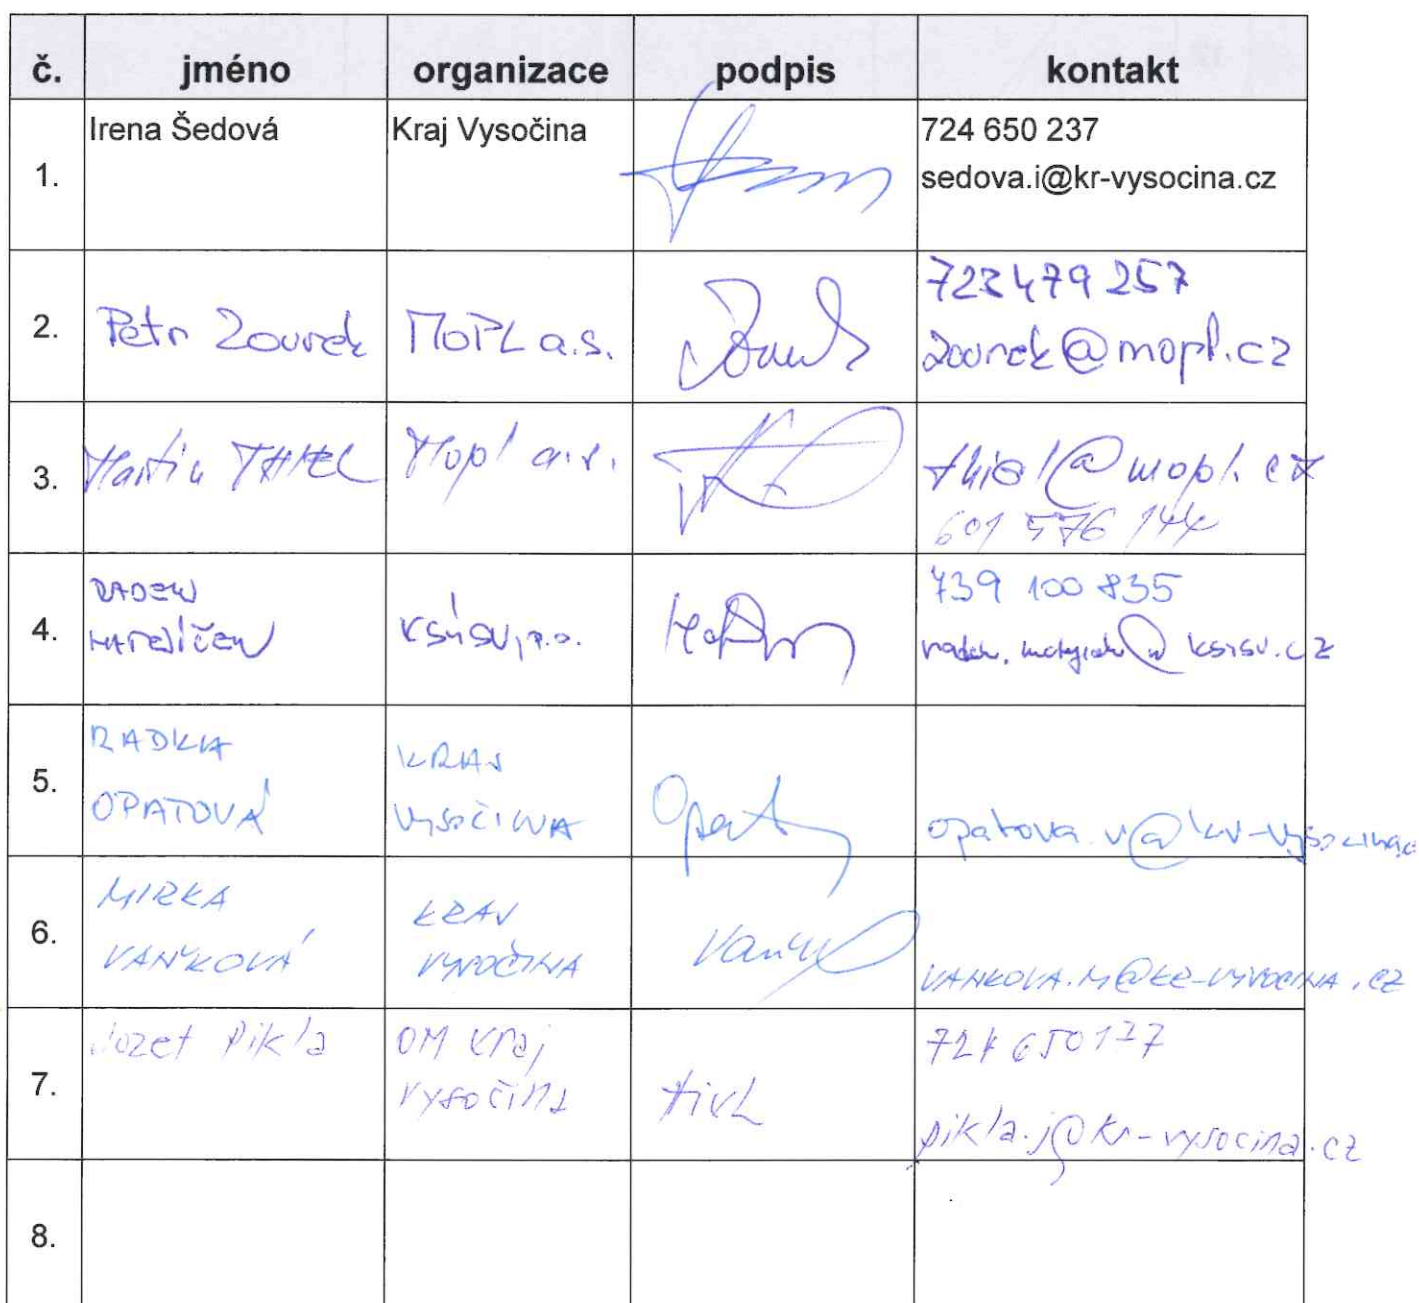 č. jméno organizace podpis kontakt
1. Irena Šedová Kraj Vysočina 724 650 237
sedova.i@kr-vysocina.cz
2. Petr Zourek MOPL a.s. 723 479 257
zourek@mopl.cz
3. Martin THIEL Mopl a.s. thiel@mopl.cz
601 576 144
4. RADEK
MATĚJÍČEK KSÚSV, p.o. 739 100 835
radek.matejicek@ksusv.cz
5. RADKA
OPATOVÁ KRAJ
VYSOČINA opatova.r@kr-vysocina.c
6. MIRKA
VAŇKOVÁ KRAJ
VYSOČINA VANKOVA.M@KR-VYSOCINA.CZ
7. Jozef Pikla OM Kraj
Vysočina 724 650 177
pikla.j@kr-vysocina.cz
8.